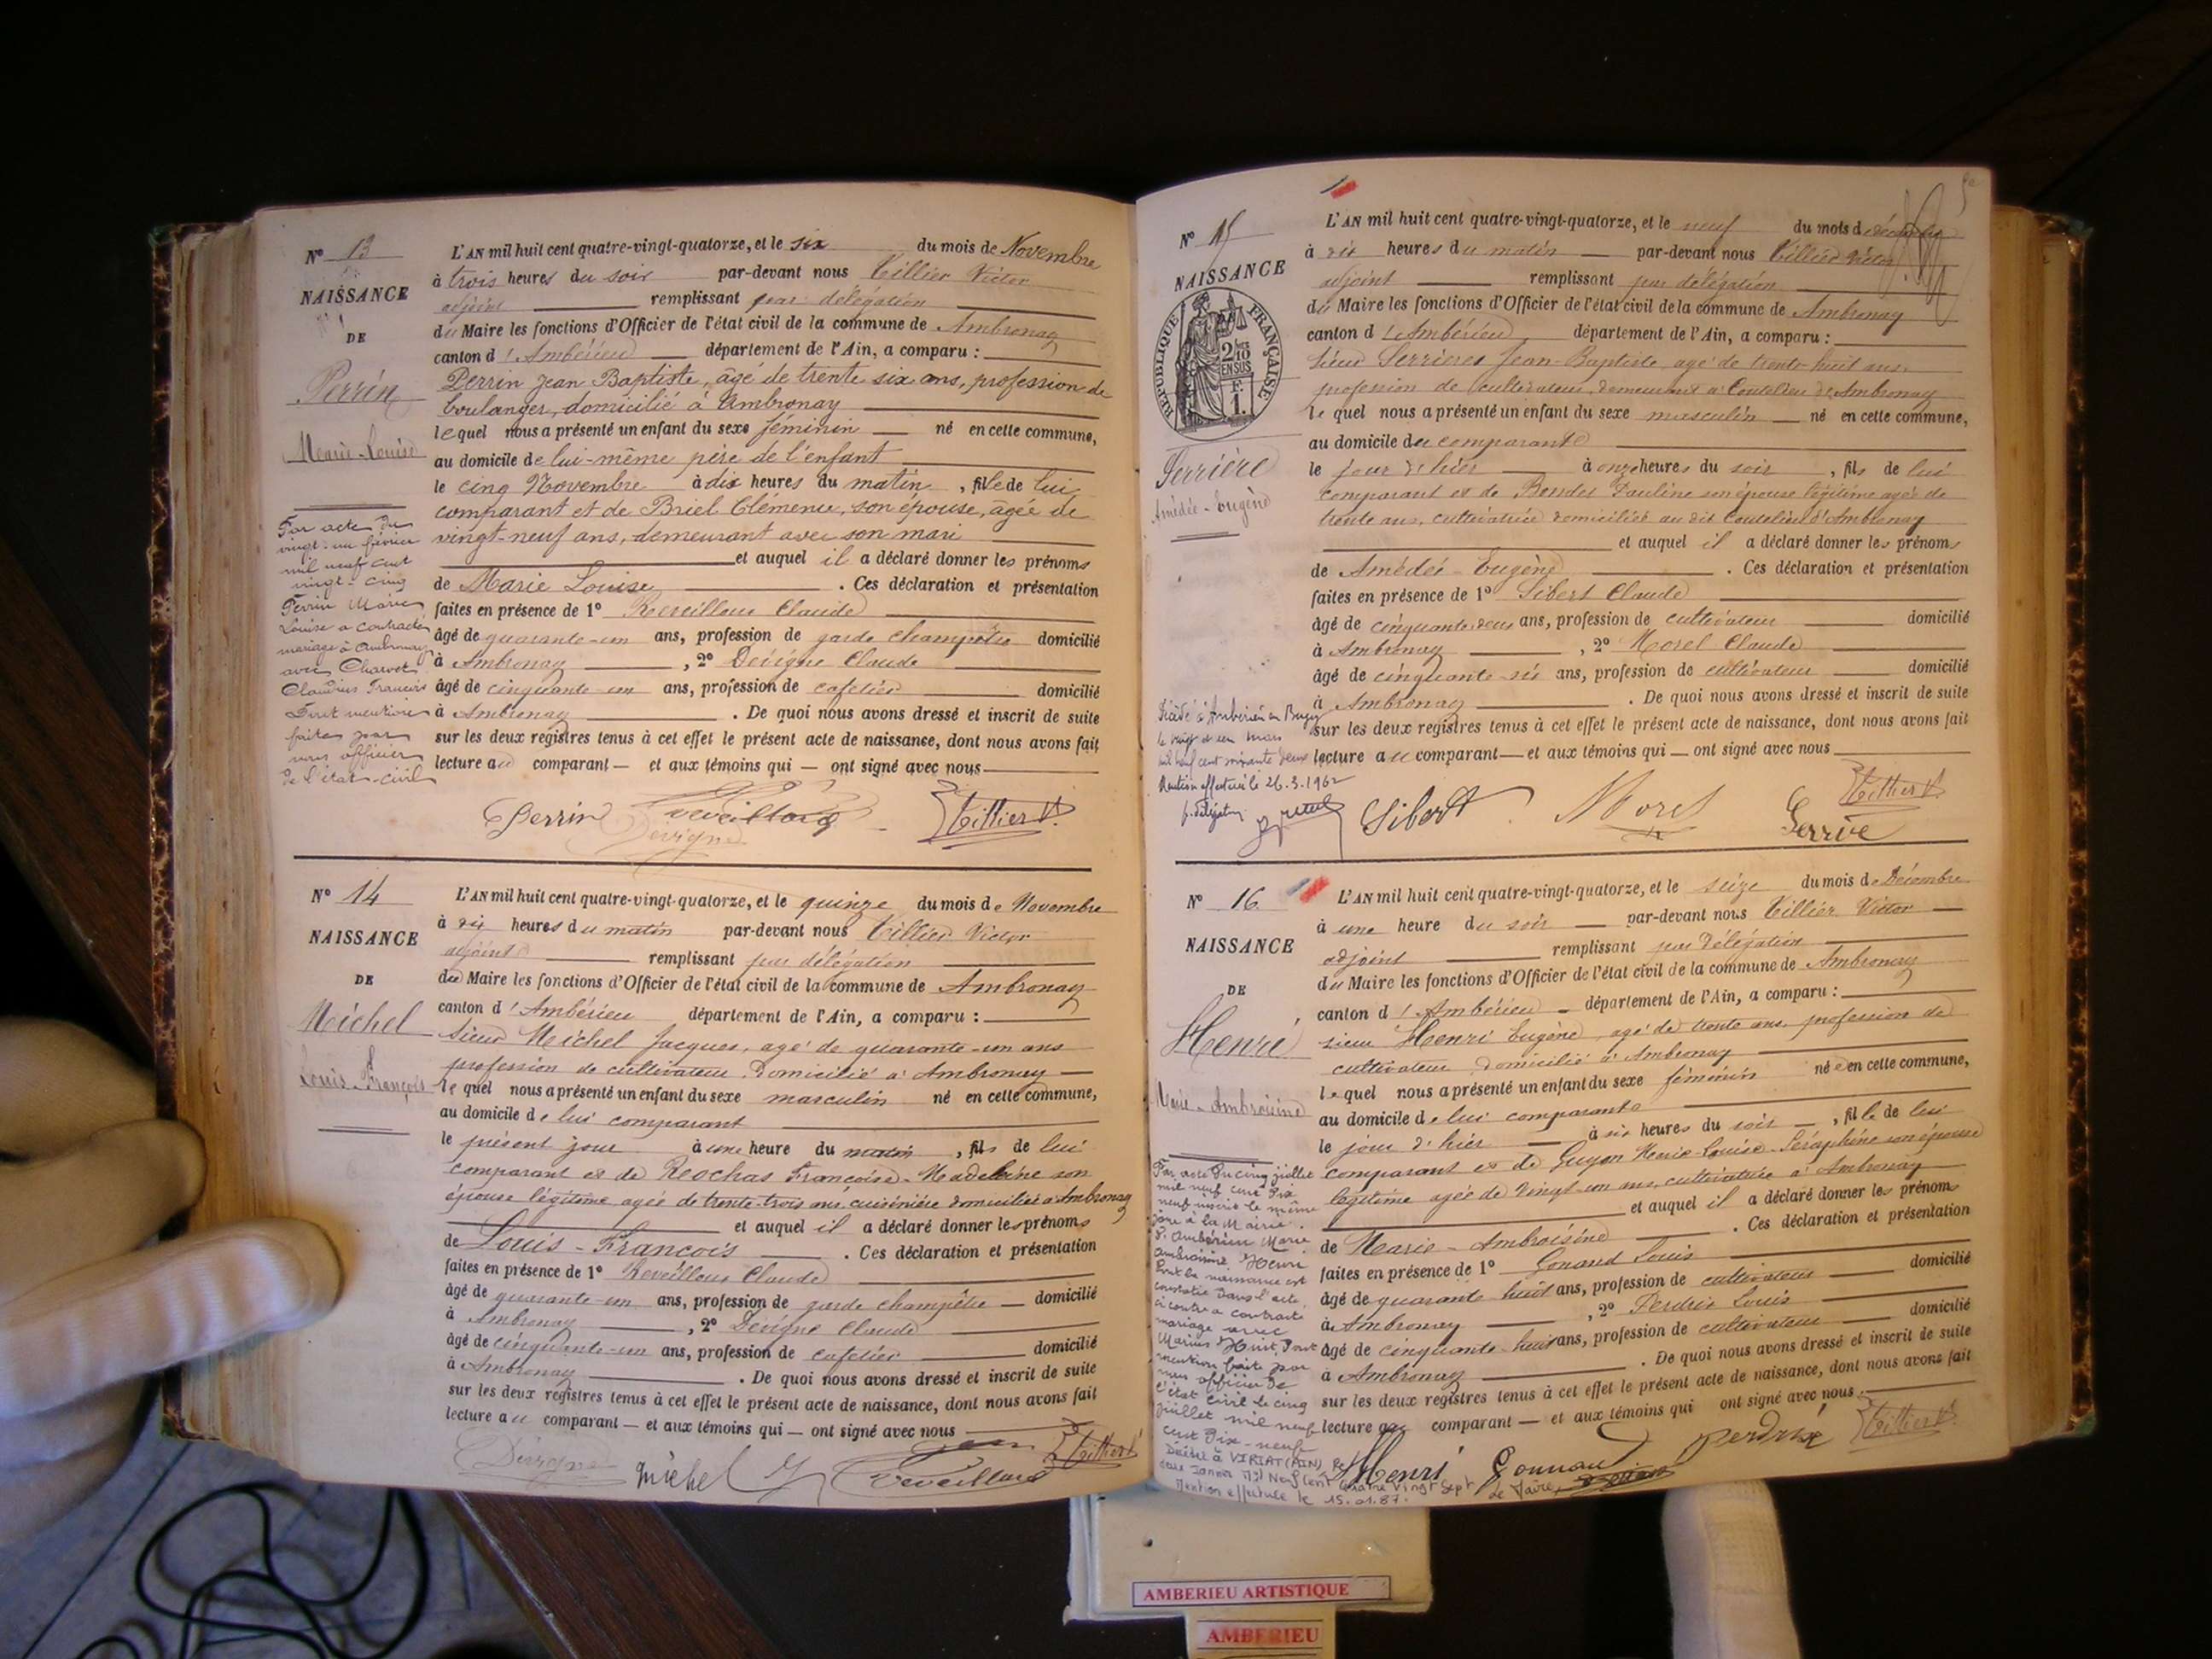 N° 13
NAISSANCE
DE
Perrin
Marie-Louise
Par acte du
vingt-un février
mil neuf cent
vingt-cinq
Perrin Marie
Louise a contracté
mariage à Ambronay
avec Charvet
Claudius François
Dont mention
faite par
nous officier
de l'état-civil
L'AN mil huit cent quatre-vingt-quatorze, et le six du mois de Novembre
à trois heures du soir par-devant nous Tillier Victor
adjoint remplissant par délégation
du Maire les fonctions d'Officier de l'état civil de la commune de Ambronay
canton d'Ambérieu département de l'Ain, a comparu :
Perrin Jean Baptiste, âgé de trente six ans, profession de
boulanger, domicilié à Ambronay
lequel nous a présenté un enfant du sexe féminin né en cette commune,
au domicile de lui-même père de l'enfant
le cinq Novembre à dix heures du matin, fille de lui
comparant et de Briel Clémence, son épouse, âgée de
vingt-neuf ans, demeurant avec son mari
et auquel il a déclaré donner les prénoms
de Marie Louise. Ces déclaration et présentation
faites en présence de 1° Reveilloux Claude
âgé de quarante-un ans, profession de garde champêtre domicilié
à Ambronay, 2° Devigne Claude
âgé de cinquante-un ans, profession de cafetier domicilié
à Ambronay. De quoi nous avons dressé et inscrit de suite
sur les deux registres tenus à cet effet le présent acte de naissance, dont nous avons fait
lecture au comparant — et aux témoins qui — ont signé avec nous
Perrin Devigne Tillier V.
N° 14
NAISSANCE
DE
Michel
Louis-François
L'AN mil huit cent quatre-vingt-quatorze, et le quinze du mois de Novembre
à dix heures du matin par-devant nous Tillier Victor
adjoint remplissant par délégation
du Maire les fonctions d'Officier de l'état civil de la commune de Ambronay
canton d'Ambérieu département de l'Ain, a comparu :
Sieur Michel Jacques, agé de quarante-un ans
profession de cultivateur, domicilié à Ambronay —
lequel nous a présenté un enfant du sexe masculin né en cette commune,
au domicile de lui comparant
le présent jour à une heure du matin, fils de lui
comparant et de Reochas Françoise-Madeleine son
épouse légitime agée de trente-trois ans cuisinière domiciliée à Ambronay
et auquel il a déclaré donner les prénoms
de Louis-François. Ces déclaration et présentation
faites en présence de 1° Reveilloux Claude
âgé de quarante-un ans, profession de garde champêtre — domicilié
à Ambronay, 2° Devigne Claude
âgé de cinquante-un ans, profession de cafetier domicilié
à Ambronay. De quoi nous avons dressé et inscrit de suite
sur les deux registres tenus à cet effet le présent acte de naissance, dont nous avons fait
lecture au comparant — et aux témoins qui — ont signé avec nous
Devigne Michel J Tillier V.
N° 15
NAISSANCE
RÉPUBLIQUE FRANÇAISE
2/10 EN SUS
F. 1.
Ferrière
Amédée-Eugène
Décédé à Ambérieu en Bugey
le vingt et un mars
mil neuf cent soixante deux
Mention effectuée le 26.3.1962
p. délégation
L'AN mil huit cent quatre-vingt-quatorze, et le neuf du mois de décembre
à dix heures du matin — par-devant nous Tillier Victor
adjoint remplissant par délégation
du Maire les fonctions d'Officier de l'état civil de la commune de Ambronay
canton d'Ambérieu département de l'Ain, a comparu :
Sieur Ferrières Jean-Baptiste agé de trente-huit ans,
profession de cultivateur, demeurant à Coutelieu d'Ambronay
lequel nous a présenté un enfant du sexe masculin — né en cette commune,
au domicile du comparant
le jour d'hier à onze heures du soir, fils de lui
comparant et de Pauline son épouse légitime agée de
trente ans, cultivatrice domiciliée au dit Coutelieu d'Ambronay
et auquel il a déclaré donner les prénoms
de Amédée-Eugène. Ces déclaration et présentation
faites en présence de 1° Sibert Claude
âgé de cinquante deux ans, profession de cultivateur domicilié
à Ambronay, 2° Morel Claude
âgé de cinquante-six ans, profession de cultivateur domicilié
à Ambronay. De quoi nous avons dressé et inscrit de suite
sur les deux registres tenus à cet effet le présent acte de naissance, dont nous avons fait
lecture au comparant — et aux témoins qui — ont signé avec nous
Sibert Morel Tillier V.
N° 16
NAISSANCE
DE
Henri
Marie-Ambroisine
Par acte du cinq juillet
mil neuf cent dix
neuf inscrit le même
jour à la Mairie
d'Ambérieu Marie
Ambroisine Henri
dont la naissance est
constatée dans l'acte
ci contre a contracté
mariage avec
Marius Huit Dont
mention faite par
nous officier de
l'état civil le cinq
juillet mil neuf
cent dix-neuf
Décédée à VIRIAT (AIN) le
Janvier Mil Neuf Cent Quatre Vingt Sept
Mention effectuée le 15.01.87.
Le Maire,
L'AN mil huit cent quatre-vingt-quatorze, et le seize du mois de Décembre
à une heure du soir — par-devant nous Tillier Victor —
adjoint remplissant par délégation
du Maire les fonctions d'Officier de l'état civil de la commune de Ambronay
canton d'Ambérieu — département de l'Ain, a comparu :
sieur Henri Eugène, agé de trente ans, profession de
cultivateur, domicilié à Ambronay
lequel nous a présenté un enfant du sexe féminin née en cette commune,
au domicile de lui comparant
le jour d'hier — à six heures du soir —, fille de lui
comparant et de Guyon Marie-Louise-Séraphine son épouse
légitime agée de vingt-un ans, cultivatrice à Ambronay
et auquel il a déclaré donner les prénoms
de Marie-Ambroisine. Ces déclaration et présentation
faites en présence de 1° Gonand Louis
âgé de quarante huit ans, profession de cultivateur domicilié
à Ambronay, 2° Perdrix Louis
âgé de cinquante-huit ans, profession de cultivateur — domicilié
à Ambronay. De quoi nous avons dressé et inscrit de suite
sur les deux registres tenus à cet effet le présent acte de naissance, dont nous avons fait
lecture au comparant — et aux témoins qui ont signé avec nous
Henri Perdrix Tillier V.
AMBERIEU ARTISTIQUE
AMBERIEU